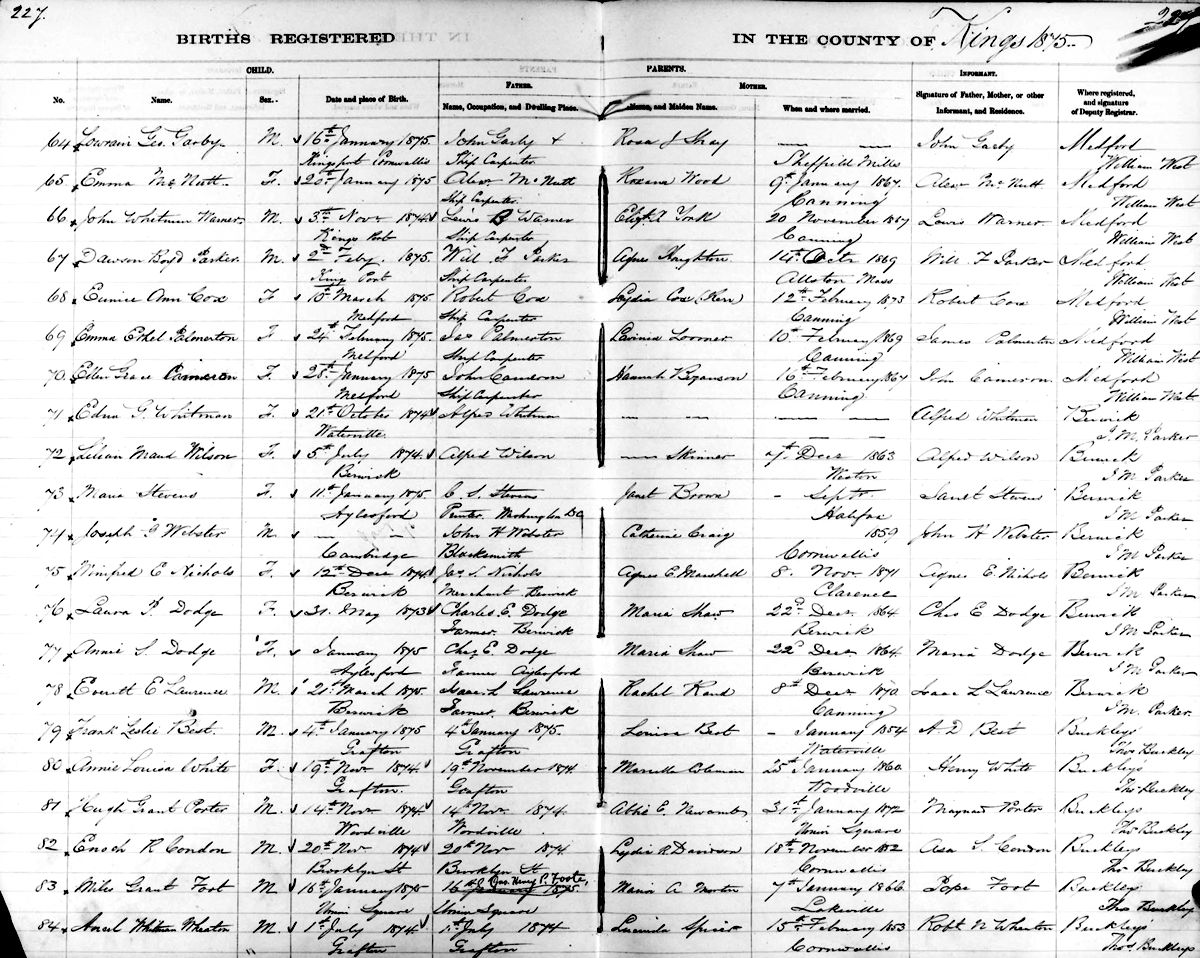 227.
227
BIRTHS REGISTERED IN THE COUNTY OF Kings 1875
CHILD. PARENTS. INFORMANT.
FATHER. MOTHER.
No. Name. Sex. Date and place of Birth. Name, Occupation, and Dwelling Place. Name, and Maiden Name. When and where married. Signature of Father, Mother, or other Informant, and Residence. Where registered, and signature of Deputy Registrar.
64 Lowrain Geo. Garby M. 16th January 1875 John Garby Rosa J Shay — — John Garby Medford
Kingsport Cornwallis Ship Carpenter Sheffield Mills William West
65 Emma McNutt F. 20th January 1875 Alexr McNutt Roxana Wood 9th January 1867 Alexr McNutt Medford
Ship Carpenter Canning William West
66 John Whitman Warner M. 3rd Novr 1874 Lewis B Warner Elizth York 20 November 1867 Lewis Warner Medford
Kings Port Ship Carpenter Canning William West
67 Dawson Boyd Parker M. 2nd Feby. 1875 Will. F Parker Agnes Houghton 14th Octr 1869 Will F Parker Medford
Kings Port Ship Carpenter Allston Mass William West
68 Eunice Ann Cox F. 10th March 1875 Robert Cox Lydia Cox (Kerr) 12th February 1873 Robert Cox Medford
Medford Ship Carpenter Canning William West
69 Emma Ethel Palmerton F. 24th February 1875 Jas Palmerton Lavinia Loomer 10th February 1869 James Palmerton Medford
Medford Ship Carpenter Canning William West
70 Ellen Grace Cameron F. 28th January 1875 John Cameron Hannah Bezanson 16th February 1867 John Cameron Medford
Medford Ship Carpenter Canning William West
71 Edna G. Whitman F. 21st October 1874 Alfred Whitman — — — — Alfred Whitman Berwick
Waterville — — J. M. Parker
72 Lilian Maud Wilson F. 5th July 1874 Alfred Wilson — Skinner 7th Decr 1863 Alfred Wilson Berwick
Berwick Weston J M Parker
73 Maria Stevens F. 11th January 1875 C. S. Stevens Janet Brown - Septr Janet Stevens Berwick
Aylesford Printer Washington DC Halifax J M Parker
74 Joseph Webster M. — — John H Webster Catherine Craig 1859 John H Webster Berwick
Cambridge Blacksmith Cornwallis J M Parker
75 Winifred E Nichols F. 12th Decr 1874 Jas. S. Nichols Agnes E. Marshall 8 Novr 1871 Agnes E. Nichols Berwick
Berwick Merchant Berwick Clarence J M Parker
76 Laura P. Dodge F. 31. May 1873 Charles E. Dodge Maria Shaw 22nd Decr 1864 Chs E Dodge Berwick
Farmer Berwick Berwick J M Parker
77 Annie S. Dodge F. January 1875 Chas E. Dodge Maria Shaw 22nd Decr 1864 Maria Dodge Berwick
Aylesford Farmer Aylesford Berwick J M Parker
78 Everett E Lawrence M. 21st March 1875 Isaac L Lawrence Rachel Rand 8th Decr 1870 Isaac L Lawrence Berwick
Berwick Farmer Berwick Canning J M. Parker
79 Frank Leslie Best. M. 4th January 1875 4 January 1875. Louisa Best - January 1854 A. D Best Buckleys
Grafton Grafton Waterville Thos Buckley
80 Annie Louisa White F. 19th Novr 1874 19th November 1874 Coleman 25th January 1860 Henry White Buckleys
Grafton Grafton Woodville Thos Buckley
81 Hugh Grant Porter M. 14th Novr 1874 14th Novr 1874. Abbie E. Newcomb 31st January 1872 Maynard Porter Buckleys
Woodville Woodville Union Square Thos Buckley
82 Enoch R Condon M. 20th Novr 1874 20th Novr 1874 Lydia R. Davidson 18th November 1852 Asa S. Condon Buckleys
Brooklyn St Brooklyn St Cornwallis Thos Buckley
83 Miles Grant Foot M. 16th January 1875 16th January 1875 Henry P. Foote, Maria A. 7th January 1866 Pope Foot Buckleys
Union Square Union Square Lakeville Thos Buckleys
84 Ansel Whitman Wheaton M 1st July 1874 1st July 1874 Lucinda Spicer 15th February 1853 Robt N Wheaton Buckleys
" Grafton Grafton Cornwallis Thos. Buckleys